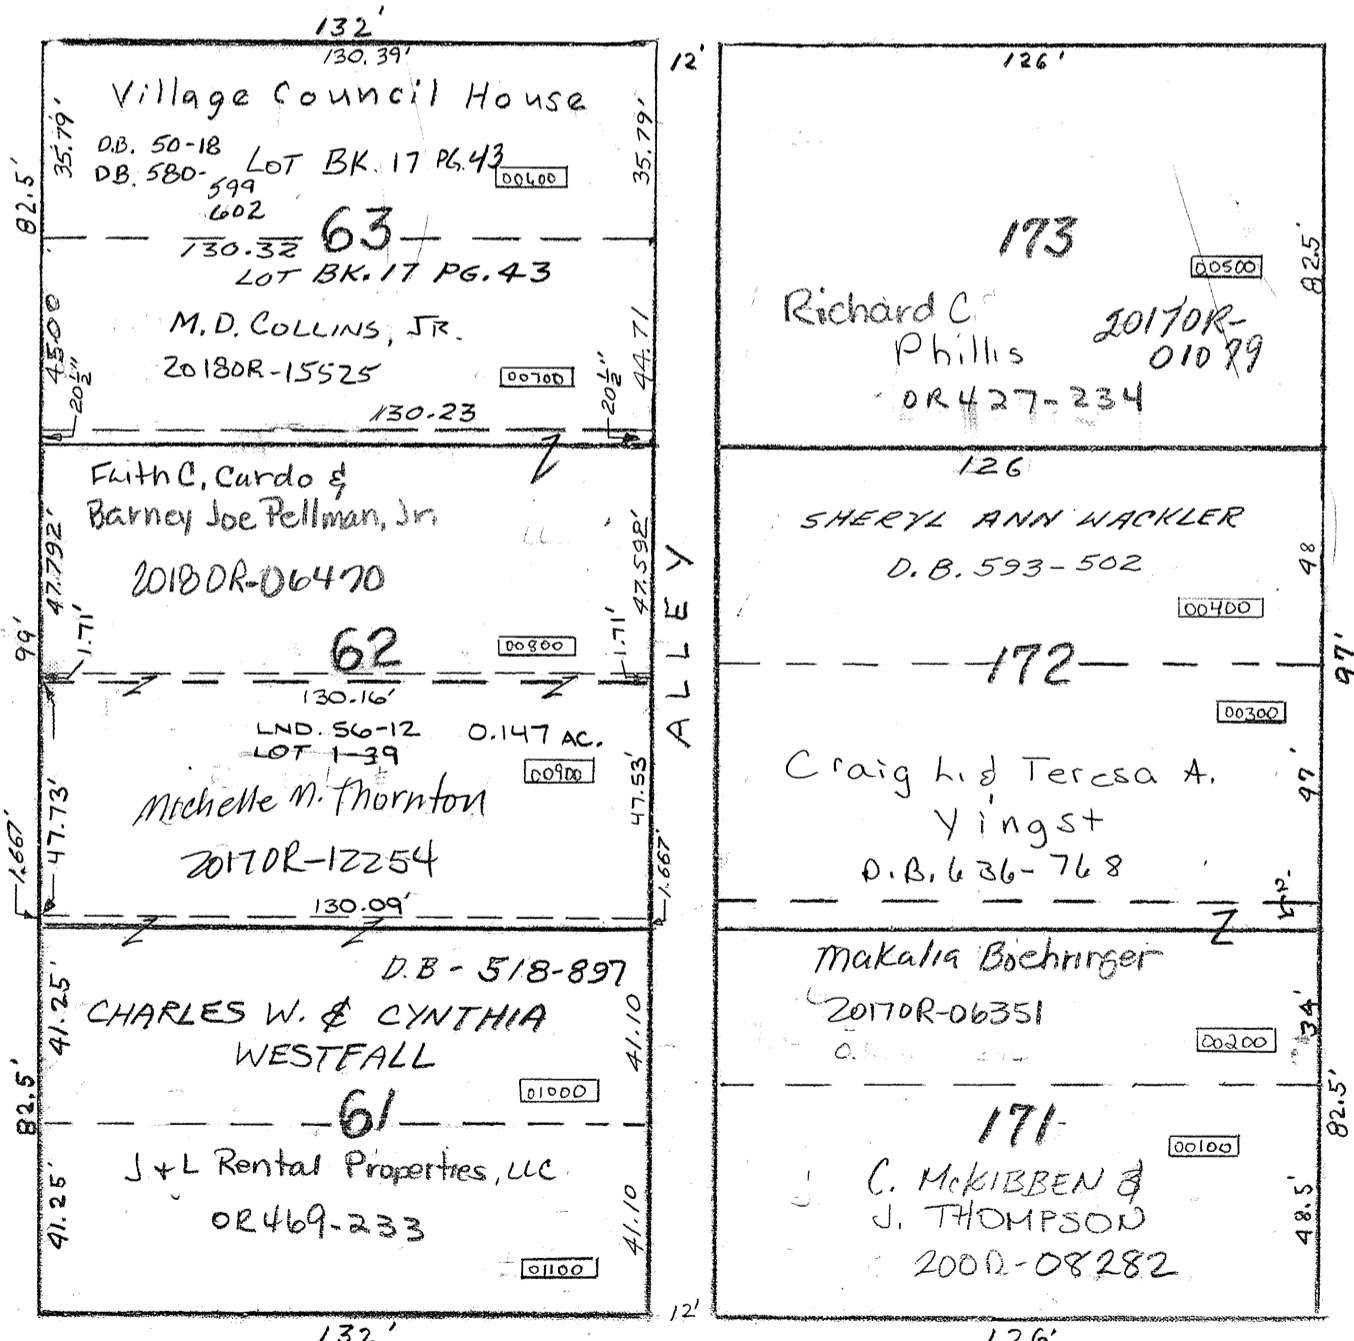 132'
130.39'
Village Council House
35.79'
35.79'
82.5'
D.B. 50-18
DB. 580-
599
602
LOT BK. 17 PG. 43
00600
63
130.32
LOT BK. 17 PG. 43
M.D. COLLINS, JR.
20180R-15525
00700
45.00
44.71
20 1/2"
20 1/2"
130.23
Faith C. Cardo &
Barney Joe Pellman, Jr.
20180R-06470
47.792'
47.592'
99'
1.71'
1.71'
62
00800
130.16'
LND. 56-12
LOT 1-39
0.147 AC.
00900
Michelle M. Thornton
20170R-12254
47.73'
47.53'
1.667'
1.667'
130.09'
D.B - 518-897
CHARLES W. & CYNTHIA
WESTFALL
41.25'
41.10
82.5'
01000
61
J & L Rental Properties, LLC
OR469-233
41.25'
41.10
01100
132'
12'
ALLEY
12'
126'
173
00500
82.5'
Richard C.
Phillis
20170R-
OR 427-234
126
SHERYL ANN WACKLER
D.B. 593-502
48
00400
172
97'
00300
Craig L. & Teresa A.
Yingst
D.B. 636-768
47'
2'
Makalia Boehringer
20170R-06351
00200
34'
171
82.5'
00100
C. McKIBBEN &
J. THOMPSON
200R-08282
48.5'
126'